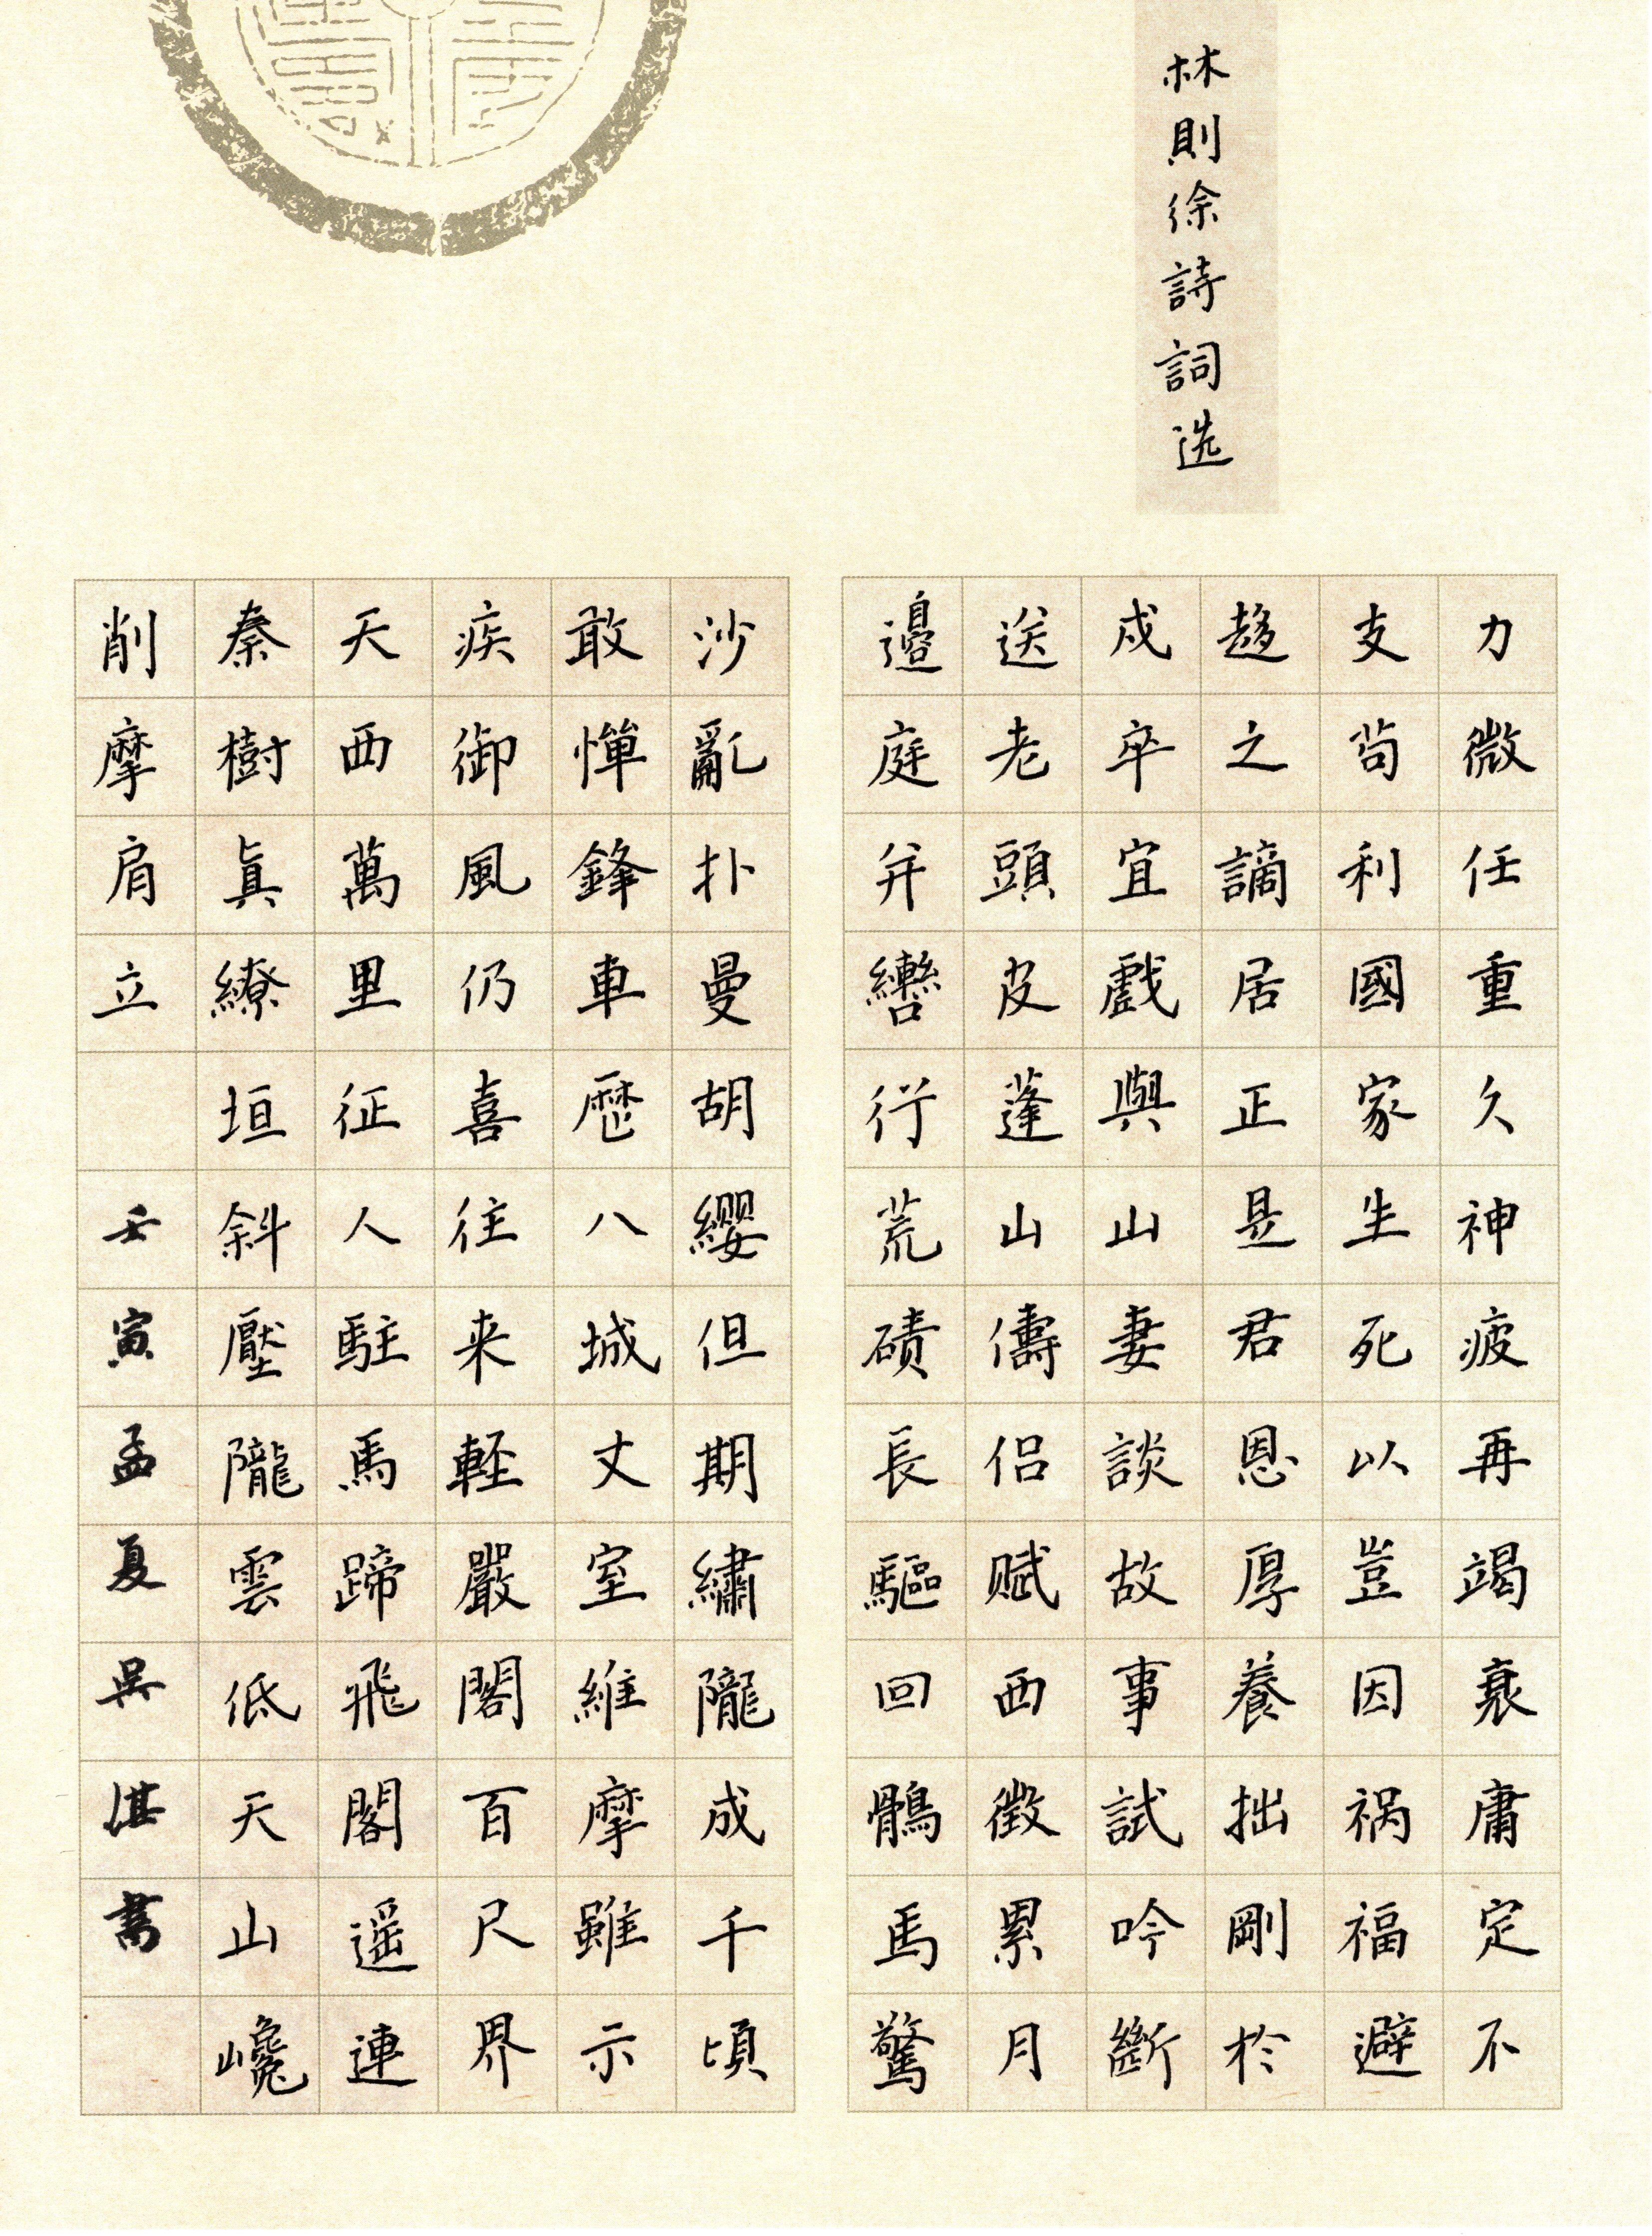 林則徐詩詞选
力微任重久神疲再竭衰庸定不
支苟利國家生死以豈因祸福避
趨之謫居正是君恩厚養拙剛於
戍卒宜戲與山妻談故事試吟斷
送老頭皮蓬山儔侣赋西徵累月
邊庭并轡行荒磧長驅回鶻馬驚
沙亂扑曼胡纓但期繡隴成千頃
敢憚鋒車歷八城丈室維摩雖示
疾御風仍喜往来軽嚴閣百尺界
天西萬里征人駐馬蹄飛閣遥連
秦樹真繚垣斜壓隴雲低天山巉
削摩肩立 壬寅孟夏吳湛書